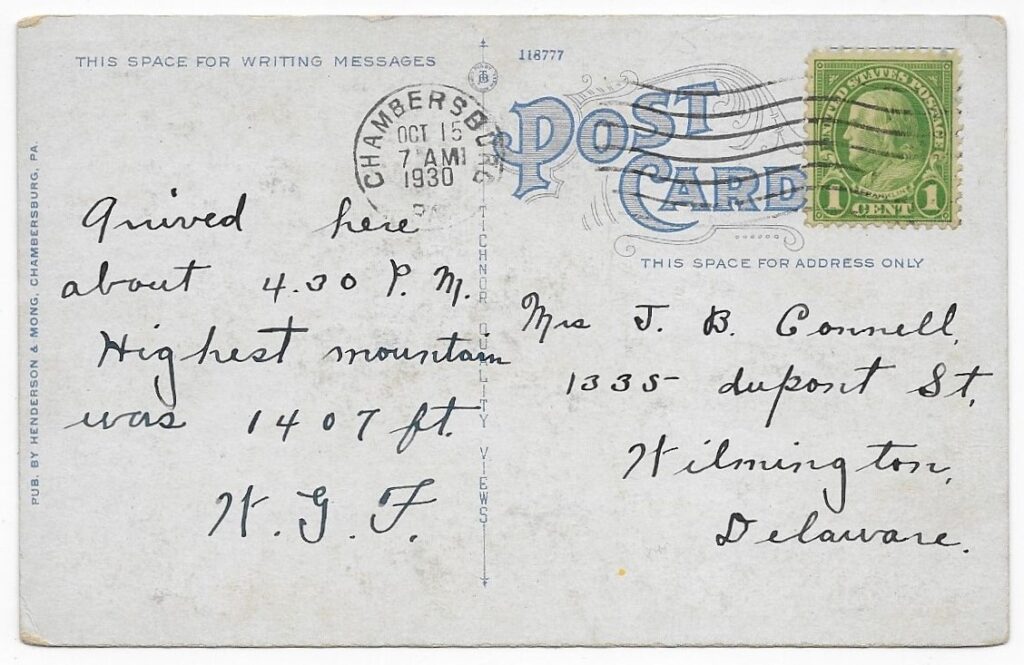 THIS SPACE FOR WRITING MESSAGES
118777
CHAMBERSBURG
OCT 15
7 AM
1930
PA
POST
CARD
UNITED STATES POSTAGE
1 CENT 1
THIS SPACE FOR ADDRESS ONLY
PUB. BY HENDERSON & MONG, CHAMBERSBURG, PA.
TICHNOR QUALITY VIEWS
Arrived here
about 4.30 P. M.
Highest mountain
was 1407 ft.
W. G. F.
Mrs J. B. Connell,
1335 dupont St,
Wilmington,
Delaware.